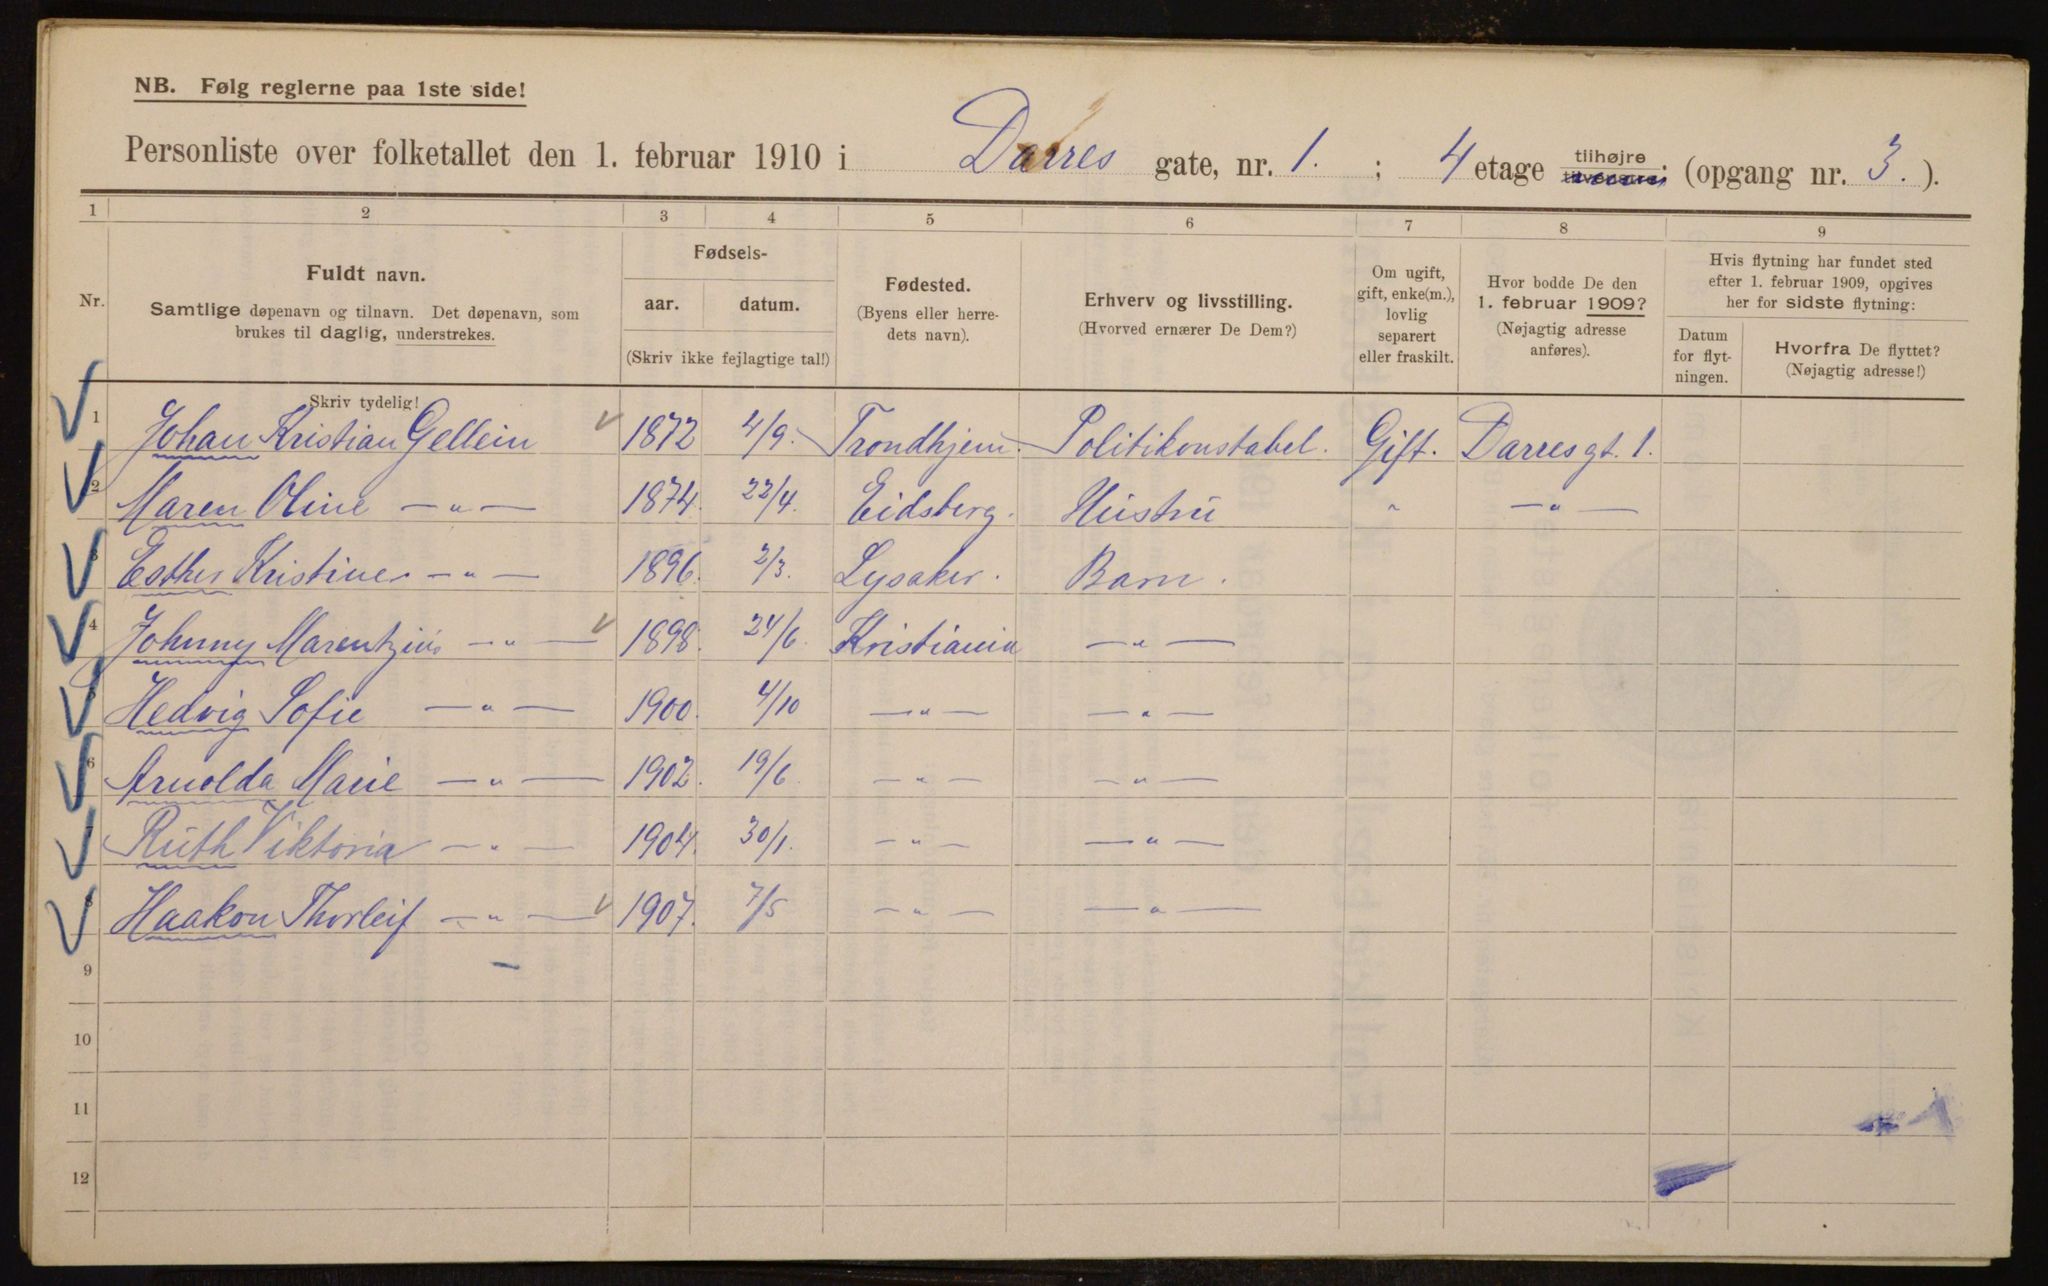 NB. Følg reglerne paa 1ste side!
Personliste over folketallet den 1. februar 1910 i Darres gate, nr. 1. ; 4 etage tilhøjre (opgang nr. 3.).
1 2 3 4 5 6 7 8 9
Nr.
Fuldt navn.
Samtlige døpenavn og tilnavn. Det døpenavn, som
brukes til daglig, understrekes.
Skriv tydelig!
Fødsels-
aar. datum.
(Skriv ikke fejlagtige tal!)
Fødested.
(Byens eller herre-
dets navn).
Erhverv og livsstilling.
(Hvorved ernærer De Dem?)
Om ugift,
gift, enke(m.),
lovlig
separert
eller fraskilt.
Hvor bodde De den
1. februar 1909?
(Nøjagtig adresse
anføres).
Hvis flytning har fundet sted
efter 1. februar 1909, opgives
her for sidste flytning:
Datum
for flyt-
ningen.
Hvorfra De flyttet?
(Nøjagtig adresse!)
1 Johan Kristian Gellein 1872 4/9. Trondhjem. Politikonstabel. Gift. Darresgt. 1.
2 Maren Oline —"— 1874. 22/4. Eidsberg. Hustru " —"—
3 Esther Kristine —"— 1896. 2/3. Lysaker. Barn.
4 Johnny Marentzius —"— 1898. 24/6. Kristiania —"—
5 Hedvig Sofie —"— 1900. 4/10 —"— —"—
6 Arnolda Marie —"— 1902. 19/6. —"— —"—
7 Ruth Viktoria —"— 1904. 30/1. —"— —"—
8 Haakon Thorleif —"— 1907. 7/5 —"— —"—
9
10
11
12